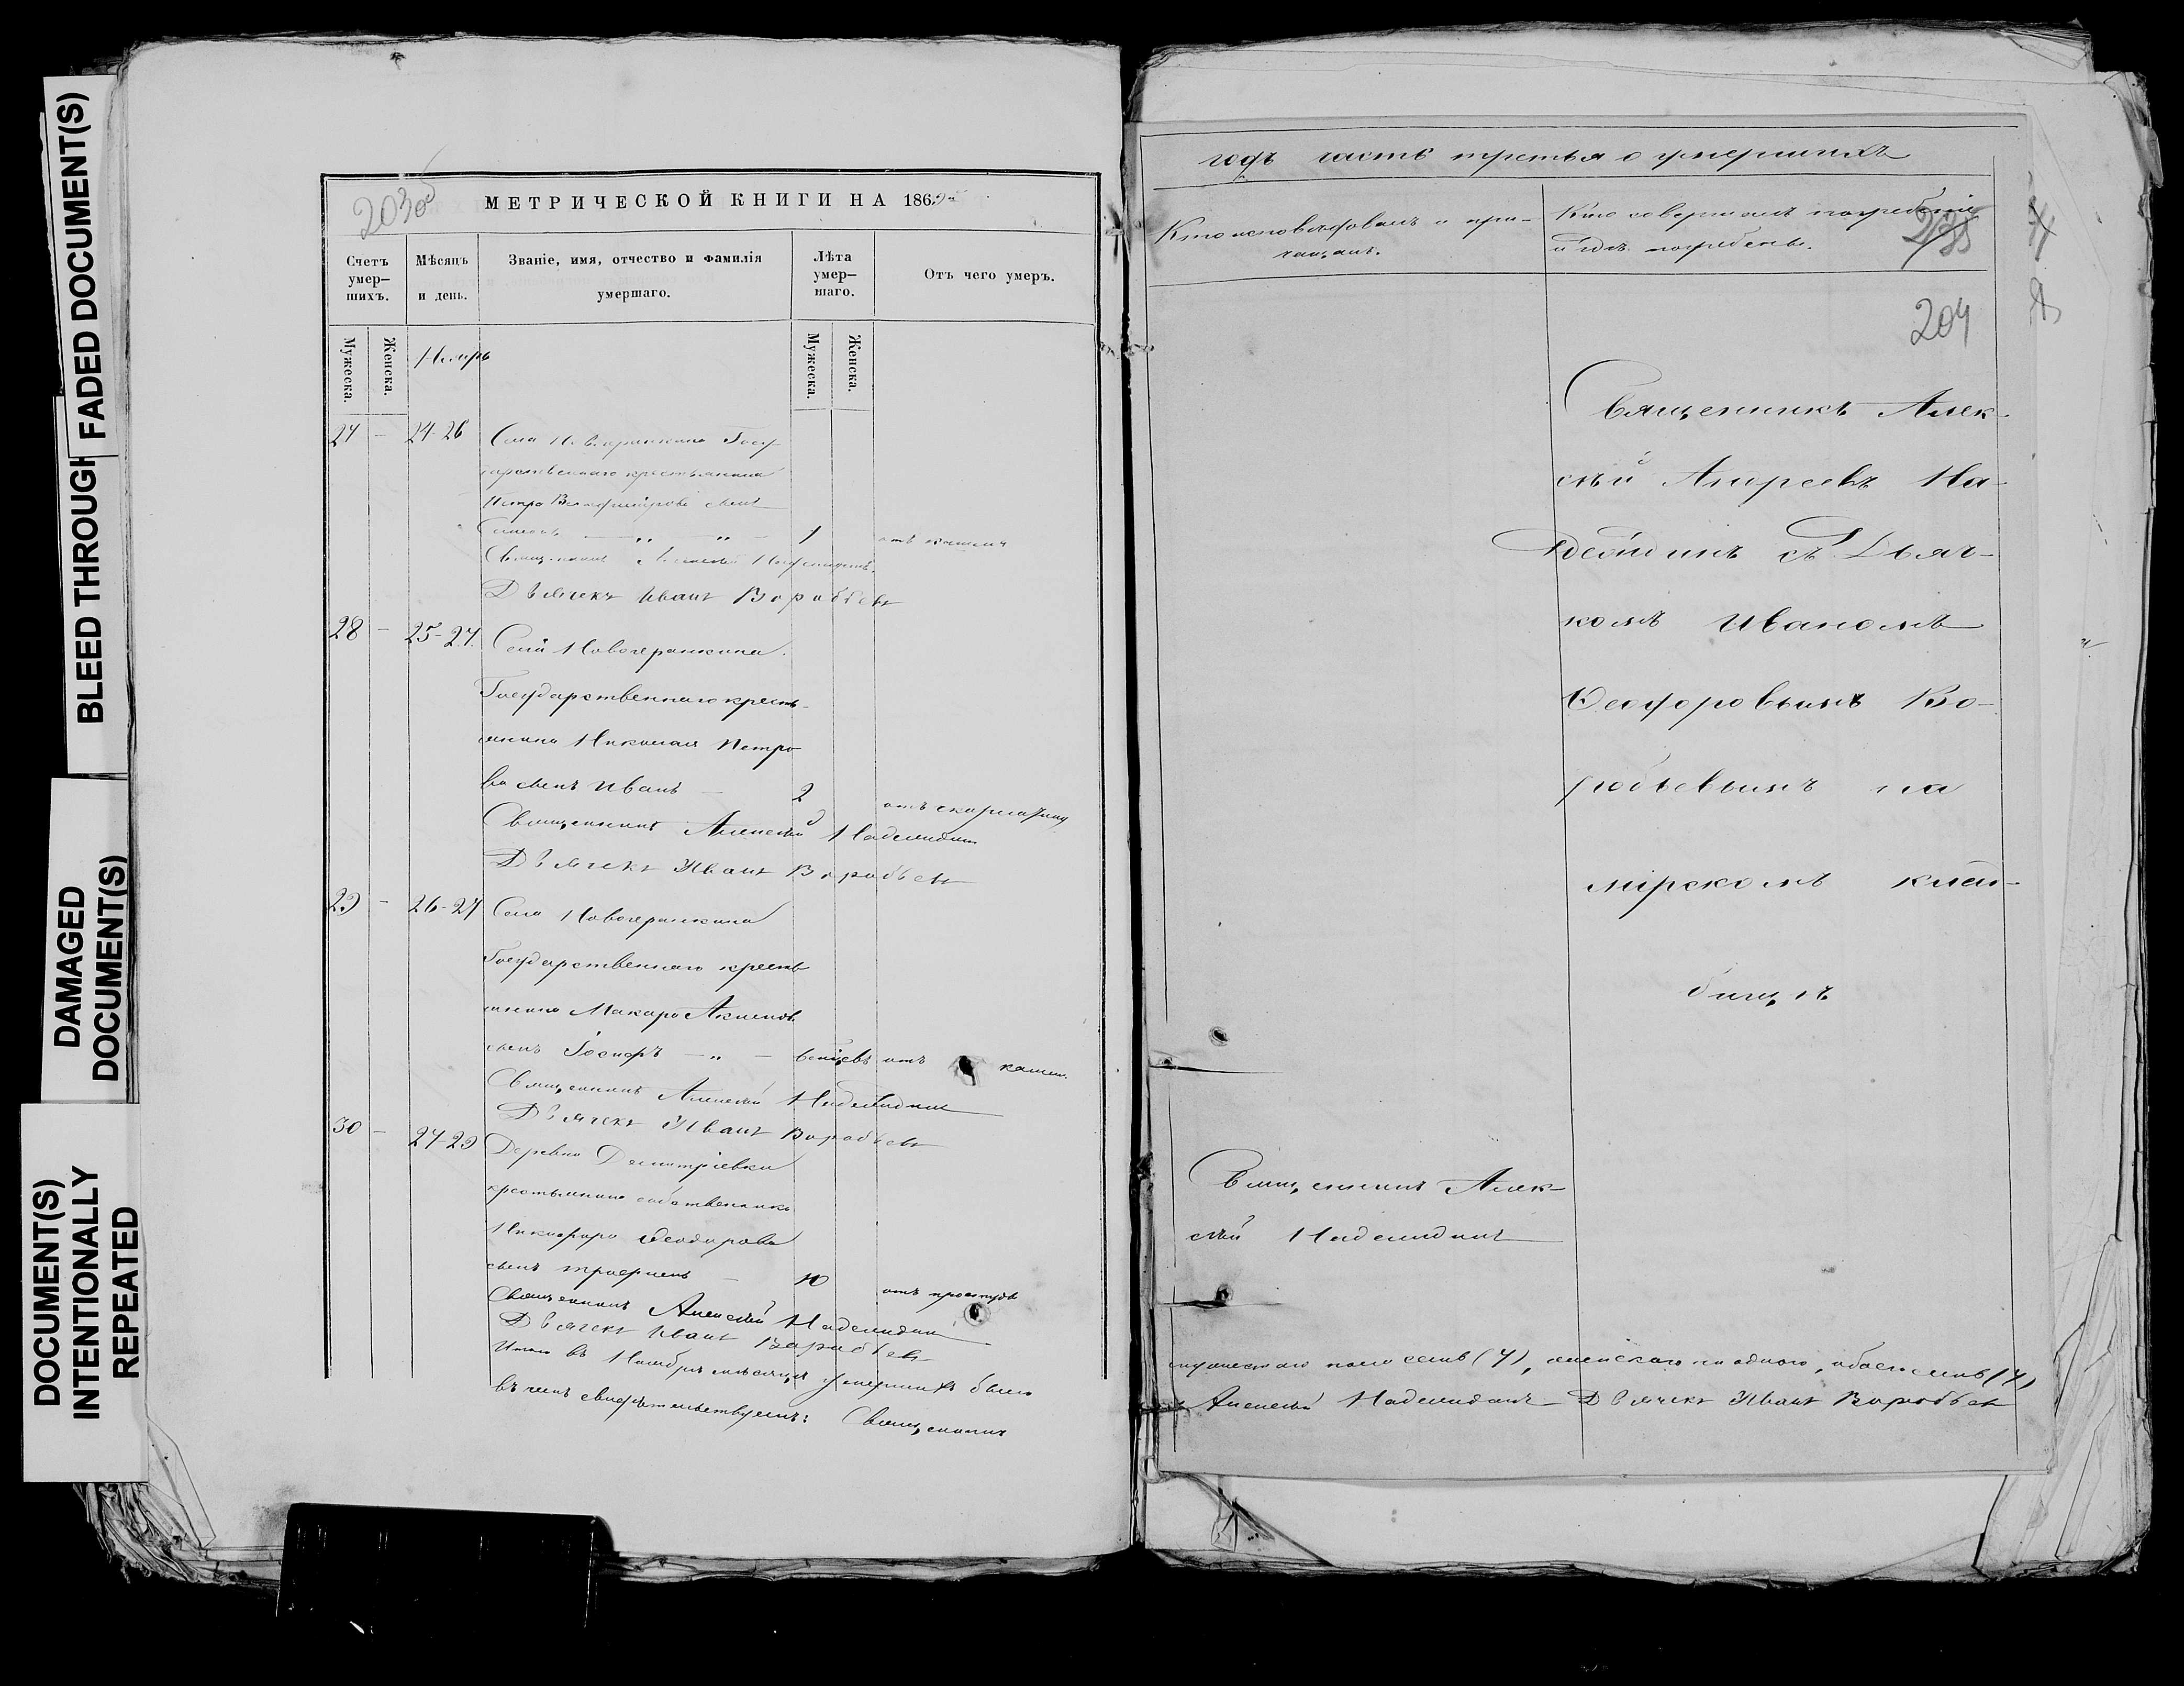 FADED DOCUMENT(S)
BLEED THROUGH
DAMAGED
DOCUMENT(S)
DOCUMENT(S)
INTENTIONALLY
REPEATED
203об
МЕТРИЧЕСКОЙ КНИГИ НА 1869
Счетъ умер-шихъ.
Мѣсяцъ и день.
Званіе, имя, отчество и фамилія умершаго.
Лѣта умер-шаго.
Отъ чего умеръ.
Мужеска.
Женска.
Мужеска.
Женска.
27 — 24-26 Села Новогеранкина Госу-
дарственнаго крестьянина
Петра сынъ
— „ — „ — 1 отъ кашля
Священникъ Алексѣй
Дьячекъ Иванъ Воробьевъ
28 — 25-27. Села Новогеранкина.
Государственнаго кресть-
янина Николая Петро
ва сынъ Иванъ — 2 отъ скарлатины
Священникъ Алексѣй Надеждинъ
Дьячекъ Иванъ Воробьевъ
29 — 26-27 Села Новогеранкина
Государственнаго кресть
янина Макара Акимова
сынъ Іосифъ — „ — отъ кашля
Священникъ Алексѣй Надеждинъ
Дьячекъ Иванъ Воробьевъ
30 — 27-29 Деревни Димитріевки
крестьянина собственника
Никифора Ѳеодорова
сынъ — 10 отъ простуды
Священникъ Алексѣй Надеждинъ
Дьячекъ Иванъ Воробьевъ
Итого въ Ноябрѣ мѣсяцѣ умершихъ было
въ чемъ свидѣтельствуемъ: Священникъ
годъ часть третья о умершихъ
Кто исповѣдовалъ и прі-
чащалъ.
Кто совершалъ погребеніе
и гдѣ погребены.
204
Священникъ Алек-
сѣй Андреевъ На-
деждинъ съ Дьяч-
комъ Иваномъ
Ѳеодоровымъ Во-
робьевымъ на
мірскомъ клад-
бищѣ
Священникъ Алек-
сѣй Надеждинъ
мужескаго пола семь (7), женскаго ни одного, обоего семь (7)
Алексѣй Надеждинъ Дьячекъ Иванъ Воробьевъ